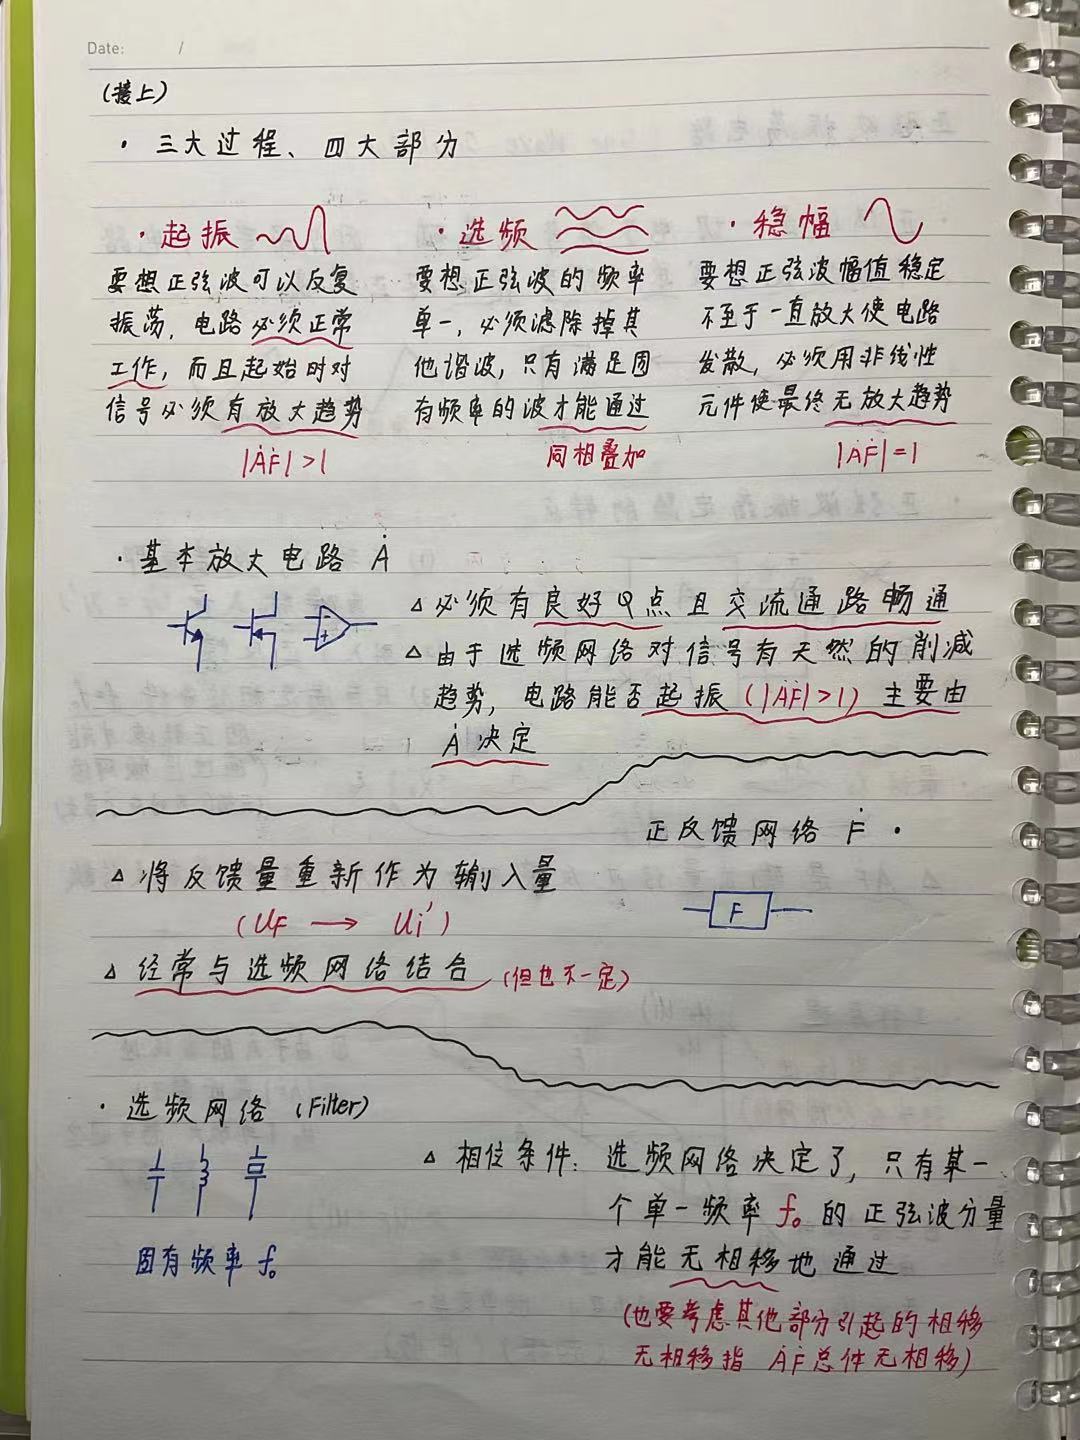 Date: /
(接上)
· 三大过程、四大部分
· 起振
要想正弦波可以反复
振荡,电路必须正常
工作,而且起始时对
信号必须有放大趋势
|ȦḞ|>1
· 选频
要想正弦波的频率
单一,必须滤除掉其
他谐波,只有满足固
有频率的波才能通过
同相叠加
· 稳幅
要想正弦波幅值稳定
不至于一直放大使电路
发散,必须用非线性
元件使最终无放大趋势
|ȦḞ|=1
· 基本放大电路 Ȧ
△ 必须有良好Q点且交流通路畅通
△ 由于选频网络对信号有天然的削减
趋势,电路能否起振(|ȦḞ|>1)主要由
Ȧ决定
正反馈网络 Ḟ ·
△ 将反馈量重新作为输入量
(UF → Ui')
F
△ 经常与选频网络结合(但也不一定)
· 选频网络 (Filter)
固有频率 f₀
△ 相位条件: 选频网络决定了,只有某一
个单一频率 f₀ 的正弦波分量
才能无相移地通过
(也要考虑其他部分引起的相移
无相移指 ȦḞ总体无相移)